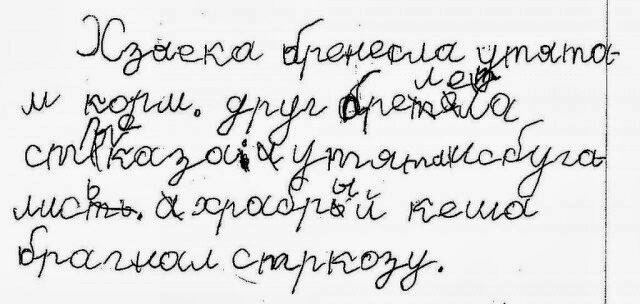 Хзаека бренесла утята-
м корм. друг бретела
стрказа. а утят исбуга
лись. а храбрый кеша
брагнал стркозу.